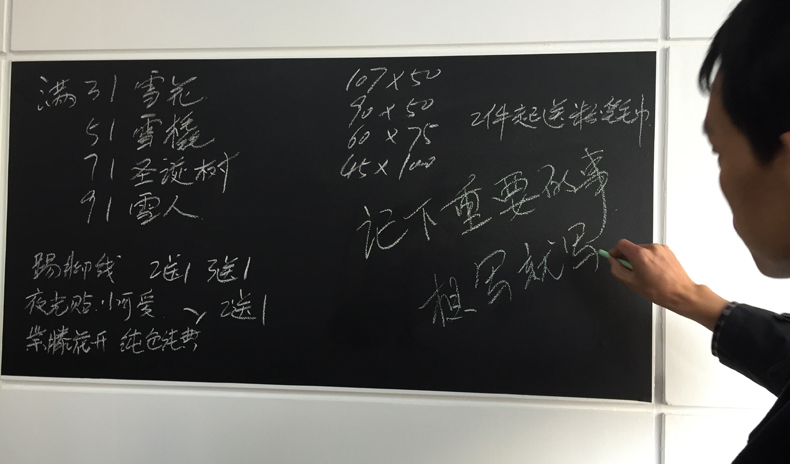 满31 雪花
51 雪橇
71 圣诞树
91 雪人
踢脚线 2送1 3送1
夜光贴 小可爱 2送1
紫藤花开 纯色经典
107×50
90×50
60×75
45×100
2件起送粉笔毛巾
记下重要的事
想写就写